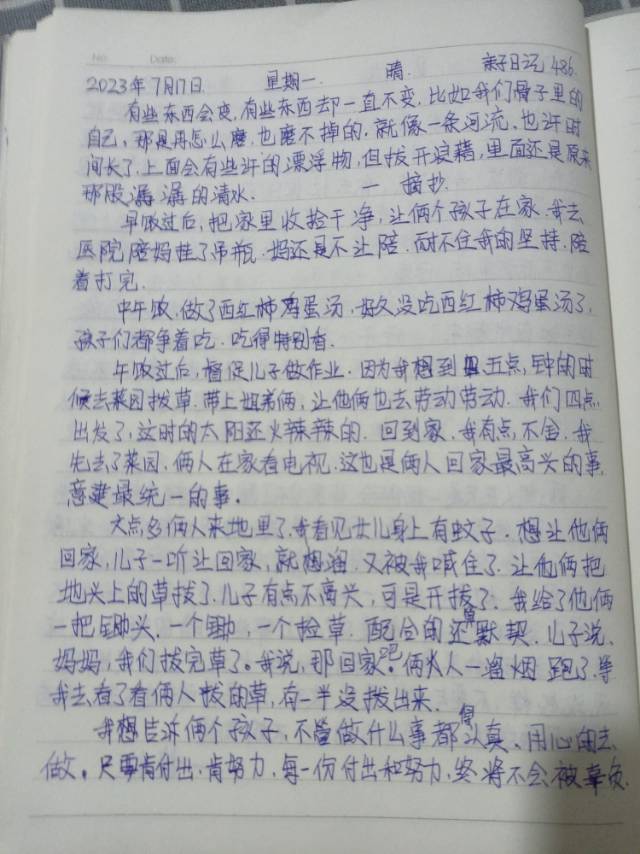 No. Date.
2023年7月17日. 星期一. 晴. 亲子日记 486.
有些东西会变,有些东西却一直不变.比如我们骨子里的
自己,那是再怎么磨,也磨不掉的,就像一条河流,也许时
间长了,上面会有些许的漂浮物,但拨开浪藉,里面还是原来
那股潺潺的清水. 一 摘抄.
早饭过后,把家里收捡干净,让俩个孩子在家.我去
医院陪妈挂了吊瓶.妈还是不让陪.耐不住我的坚持,陪
着打完.
中午饭,做了西红柿鸡蛋汤,好久没吃西红柿鸡蛋汤了,
孩子们都争着吃.吃得特别香.
午饭过后,督促儿子做作业.因为我想到五点,钟的时
候去菜园拔草.带上姐弟俩,让他俩也去劳动劳动.我们四点
出发了,这时的太阳还火辣辣的.回到家,我有点不舍.我
先去了菜园.俩人在家看电视.这也是俩人回家最高兴的事,
意建最统一的事.
六点多俩人来地里了,我看见女儿身上有蚊子.想让他俩
回家,儿子一听让回家,就想溜.又被我喊住了.让他俩把
地头上的草拔了.儿子有点不高兴,可是开拔了.我给了他俩
一把锄头.一个锄,一个捡草.配合的还算默契.儿子说,
妈妈,我们拔完草了.我说,那回家吧.俩人一溜烟跑了.等
我去看了看俩人拔的草,有一半没拨出来.
我想告诉俩个孩子,不管做什么事都得认真、用心的去
做.只要肯付出,肯努力,每一份付出和努力,终将不会被辜负.